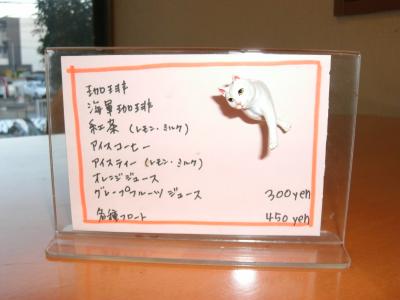 珈琲
海軍珈琲
紅茶 (レモン・ミルク)
アイスコーヒー
アイスティー (レモン・ミルク)
オレンジジュース
グレープフルーツジュース 300yen
各種フロート 450yen